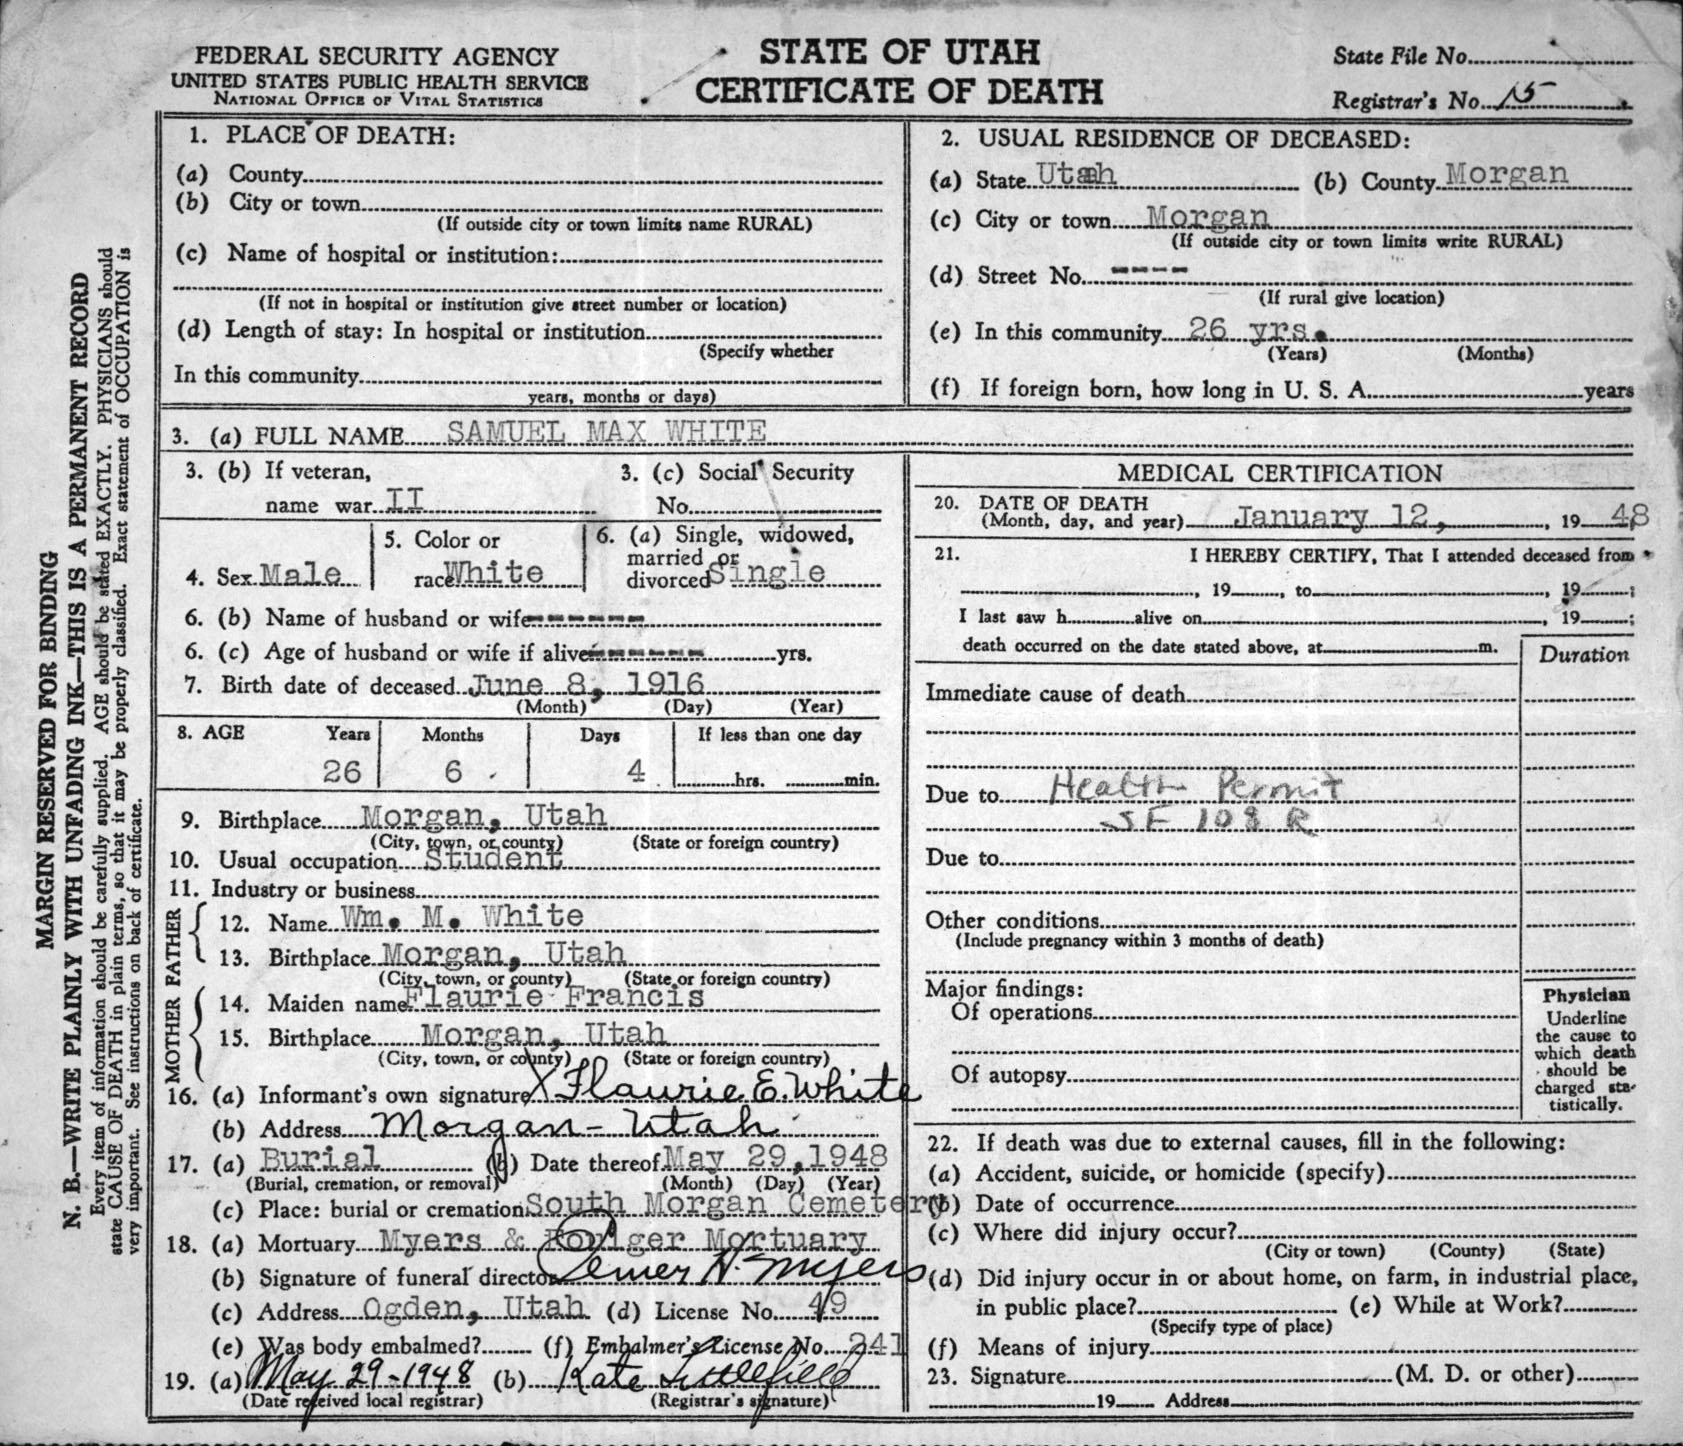 FEDERAL SECURITY AGENCY
UNITED STATES PUBLIC HEALTH SERVICE
NATIONAL OFFICE OF VITAL STATISTICS
STATE OF UTAH
CERTIFICATE OF DEATH
State File No.
Registrar's No. 15
MARGIN RESERVED FOR BINDING
N. B.—WRITE PLAINLY WITH UNFADING INK—THIS IS A PERMANENT RECORD
Every item of information should be carefully supplied. AGE should be stated EXACTLY. PHYSICIANS should
state CAUSE OF DEATH in plain terms, so that it may be properly classified. Exact statement of OCCUPATION is
very important. See instructions on back of certificate.
1. PLACE OF DEATH:
(a) County
(b) City or town
(If outside city or town limits name RURAL)
(c) Name of hospital or institution:
(If not in hospital or institution give street number or location)
(d) Length of stay: In hospital or institution
(Specify whether
In this community
years, months or days)
2. USUAL RESIDENCE OF DECEASED:
(a) State Utah (b) County Morgan
(c) City or town Morgan
(If outside city or town limits write RURAL)
(d) Street No. ----
(If rural give location)
(e) In this community 26 yrs.
(Years) (Months)
(f) If foreign born, how long in U. S. A. years
3. (a) FULL NAME SAMUEL MAX WHITE
3. (b) If veteran,
name war II
3. (c) Social Security
No.
4. Sex Male
5. Color or
race White
6. (a) Single, widowed,
married or
divorced Single
6. (b) Name of husband or wife ------
6. (c) Age of husband or wife if alive ------ yrs.
7. Birth date of deceased June 8, 1916
(Month) (Day) (Year)
8. AGE Years Months Days If less than one day
26 6 4 hrs. min.
9. Birthplace Morgan, Utah
(City, town, or county) (State or foreign country)
10. Usual occupation Student
11. Industry or business
FATHER
12. Name Wm. M. White
13. Birthplace Morgan, Utah
(City, town, or county) (State or foreign country)
MOTHER
14. Maiden name Flaurie Francis
15. Birthplace Morgan, Utah
(City, town, or county) (State or foreign country)
16. (a) Informant's own signature X Flaurie E. White
(b) Address Morgan - Utah
17. (a) Burial (b) Date thereof May 29, 1948
(Burial, cremation, or removal) (Month) (Day) (Year)
(c) Place: burial or cremation South Morgan Cemetery
18. (a) Mortuary Myers & Foulger Mortuary
(b) Signature of funeral director H. Myers
(c) Address Ogden, Utah (d) License No. 49
(e) Was body embalmed? (f) Embalmer's License No. 241
19. (a) May 29-1948 (b) Kate Littlefield
(Date received local registrar) (Registrar's signature)
MEDICAL CERTIFICATION
20. DATE OF DEATH
(Month, day, and year) January 12, , 19 48
21. I HEREBY CERTIFY, That I attended deceased from
, 19 , to , 19 ;
I last saw h alive on , 19 ;
death occurred on the date stated above, at m.
Duration
Immediate cause of death
Due to Health Permit
SF 108 R
Due to
Other conditions
(Include pregnancy within 3 months of death)
Major findings:
Of operations
Of autopsy
Physician
Underline
the cause to
which death
should be
charged sta-
tistically.
22. If death was due to external causes, fill in the following:
(a) Accident, suicide, or homicide (specify)
(b) Date of occurrence
(c) Where did injury occur?
(City or town) (County) (State)
(d) Did injury occur in or about home, on farm, in industrial place,
in public place? (e) While at Work?
(Specify type of place)
(f) Means of injury
23. Signature (M. D. or other)
19 Address